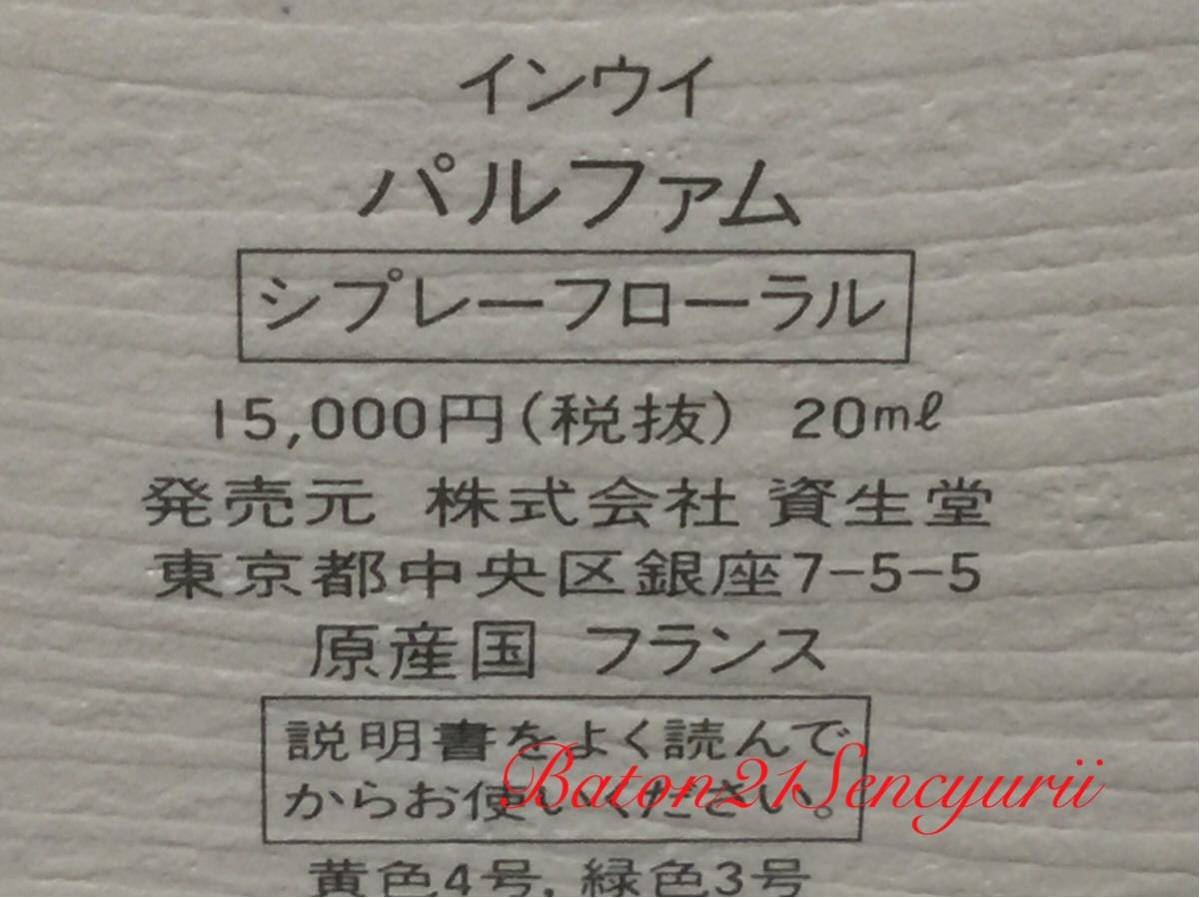 インウイ
パルファム
シプレーフローラル
15,000円(税抜) 20ml
発売元 株式会社 資生堂
東京都中央区銀座7-5-5
原産国 フランス
説明書をよく読んで
からお使いください。
Baton21Sencyurii
黄色4号,緑色3号